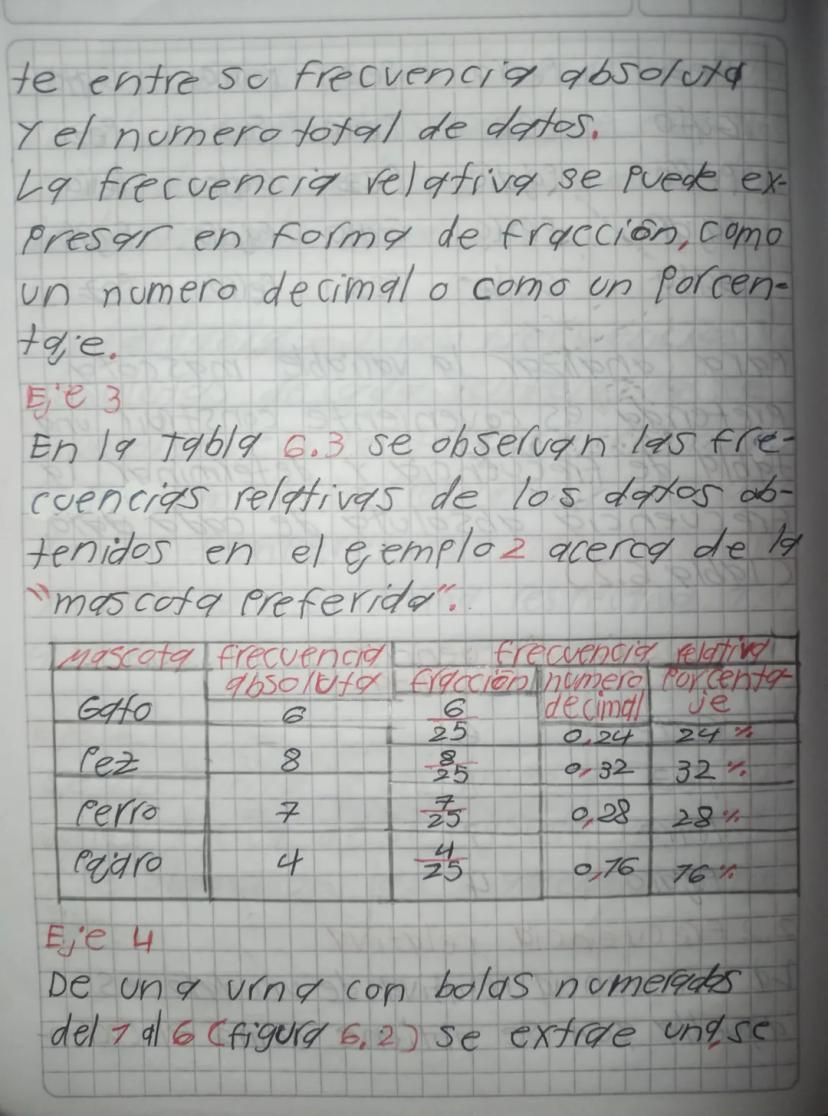 te entre su frecuencia absoluta
y el numero total de datos.
La frecuencia relativa se puede ex-
presar en forma de fracción, como
un numero decimal o como un porcen-
taje.
Eje 3
En la Tabla 6.3 se observan las fre-
cuencias relativas de los datos ob-
tenidos en el ejemplo 2 acerca de la
"mascota preferida".
Mascota frecuencia absoluta frecuencia relativa
fracción numero decimal Porcentaje
Gato 6 6/25 0,24 24%
Pez 8 8/25 0,32 32%
Perro 7 7/25 0,28 28%
Pajaro 4 4/25 0,16 16%
Eje 4
De una urna con bolas numeradas
del 1 al 6 (figura 6.2) se extrae una, se